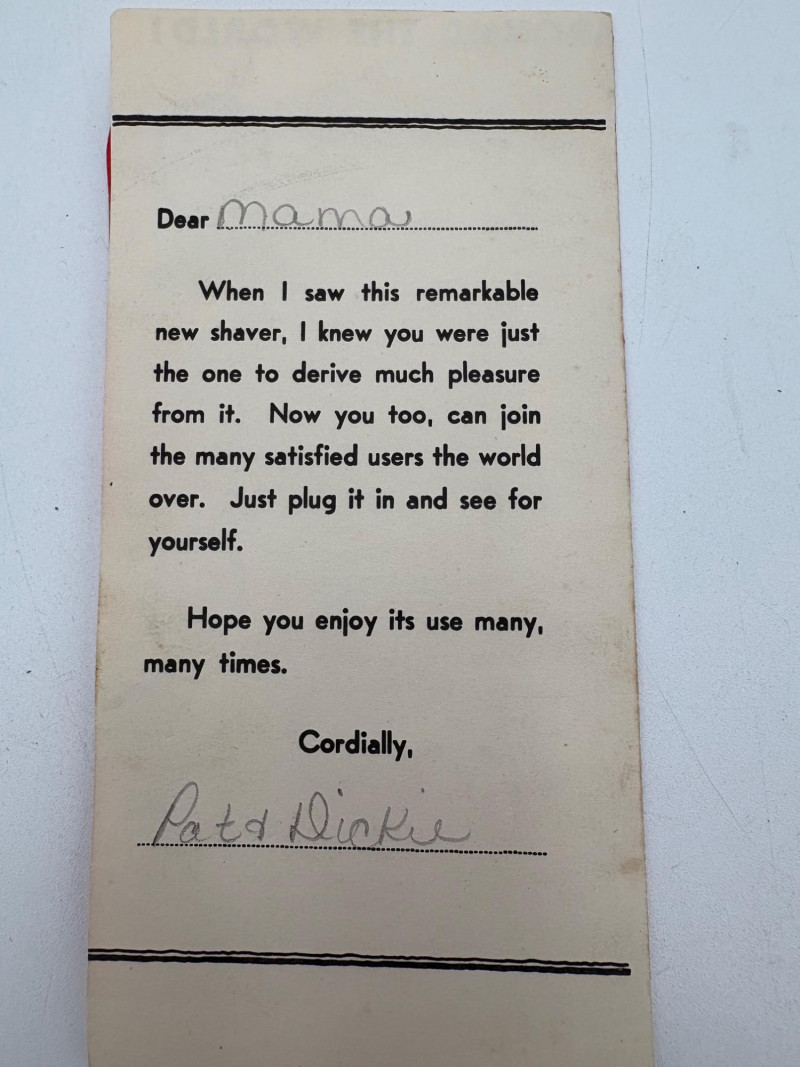 Dear Mama
When I saw this remarkable
new shaver, I knew you were just
the one to derive much pleasure
from it. Now you too, can join
the many satisfied users the world
over. Just plug it in and see for
yourself.
Hope you enjoy its use many,
many times.
Cordially,
Pat & Dickie